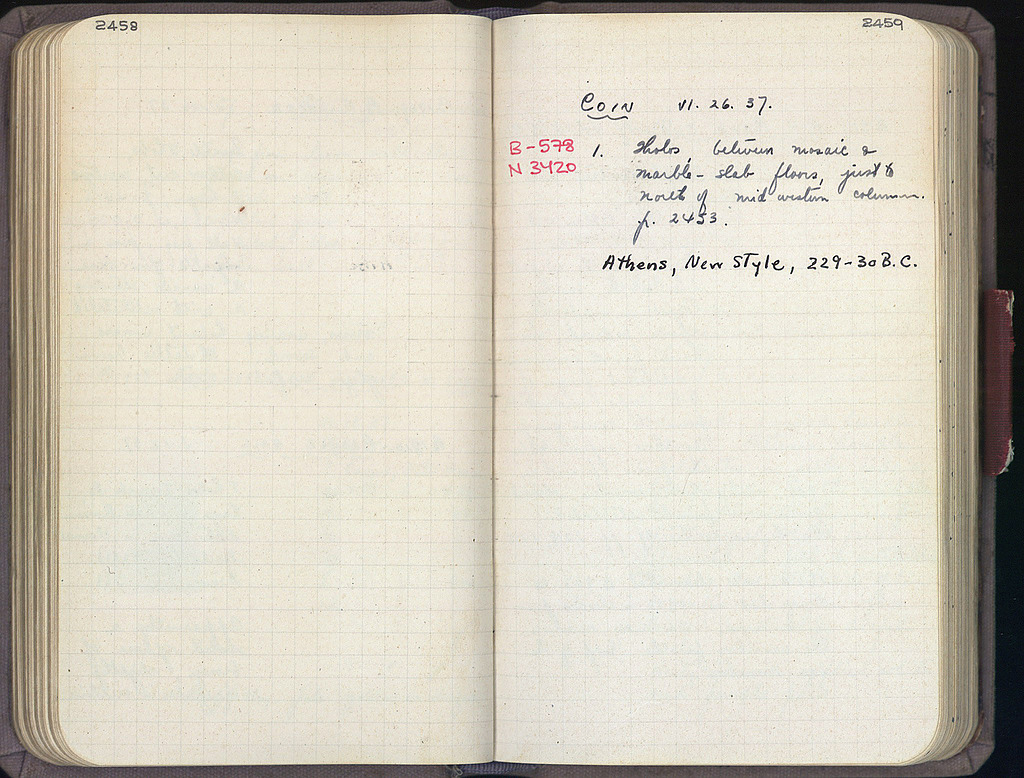 2458
2459
Coin VI. 26. 37.
B-578
N 3420
1. Tholos, between mosaic &
marble-slab floors, just to
north of mid western column.
p. 2453.
Athens, New Style, 229-30 B.C.